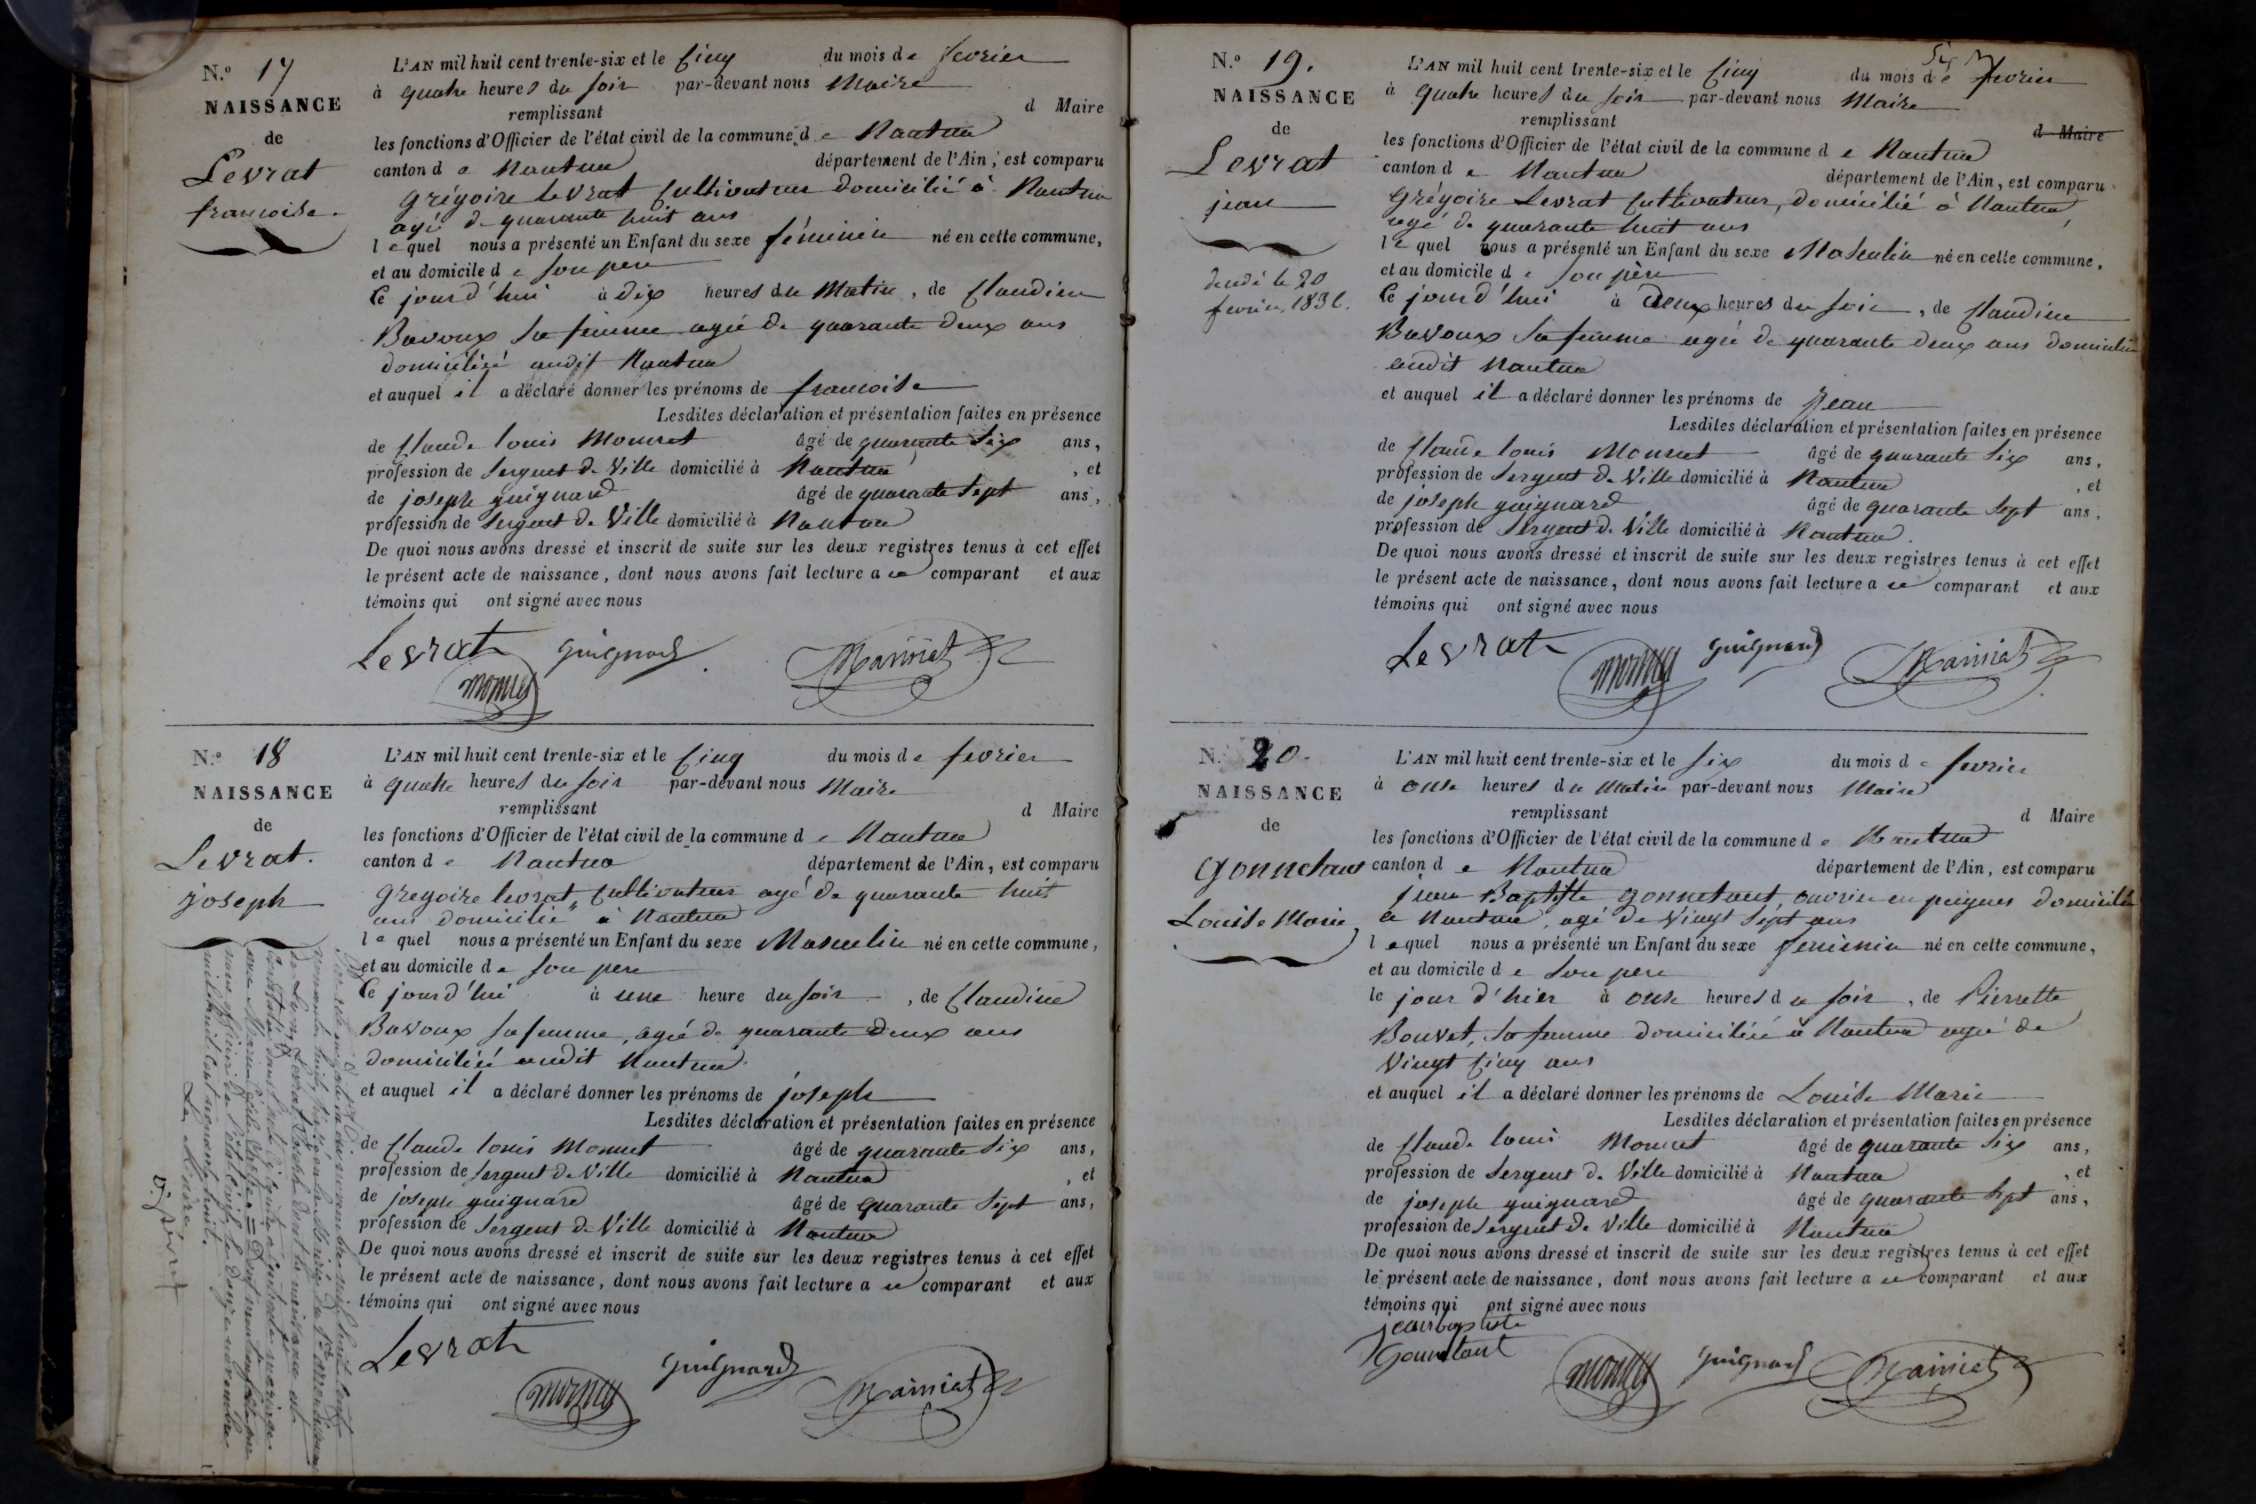 N.° 17
NAISSANCE
de
Levrat
francoise.
L'AN mil huit cent trente-six et le Cinq du mois de fevrier
à quatre heures du soir par-devant nous Maire
remplissant d Maire
les fonctions d'Officier de l'état civil de la commune de Nantua
canton de Nantua département de l'Ain, est comparu
grégoire levrat Cultivateur domicilié à Nantua
agé de quarante huit ans
lequel nous a présenté un Enfant du sexe féminin né en cette commune,
et au domicile de son pere
Ce jourd'hui à dix heures du Matin, de Claudine
Bavoux sa femme agée de quarante deux ans
domiciliée audit Nantua
et auquel il a déclaré donner les prénoms de francoise
Lesdites déclaration et présentation faites en présence
de Claude louis Mournet âgé de quarante six ans,
profession de Sergent de Ville domicilié à Nantua, et
de joseph guignard âgé de quarante sept ans,
profession de Sergent de Ville domicilié à Nantua
De quoi nous avons dressé et inscrit de suite sur les deux registres tenus à cet effet
le présent acte de naissance, dont nous avons fait lecture a ce comparant et aux
témoins qui ont signé avec nous
Levrat guignard
N.° 18
NAISSANCE
de
Levrat.
joseph
L'AN mil huit cent trente-six et le Cinq du mois de fevrier
à quatre heures du soir par-devant nous Maire
remplissant d Maire
les fonctions d'Officier de l'état civil de la commune de Nantua
canton de Nantua département de l'Ain, est comparu
gregoire levrat, Cultivateur agé de quarante huit
ans domicilié à Nantua
lequel nous a présenté un Enfant du sexe Masculin né en cette commune,
et au domicile de son pere
Ce jourd'hui à une heure du soir, de Claudine
Bavoux sa femme, agée de quarante deux ans
domiciliée audit Nantua
et auquel il a déclaré donner les prénoms de joseph
Lesdites déclaration et présentation faites en présence
de Claude louis Mournet âgé de quarante six ans,
profession de Sergent de Ville domicilié à Nantua, et
de joseph guignard âgé de quarante sept ans,
profession de Sergent de Ville domicilié à Nantua
De quoi nous avons dressé et inscrit de suite sur les deux registres tenus à cet effet
le présent acte de naissance, dont nous avons fait lecture a ce comparant et aux
témoins qui ont signé avec nous
Levrat guignard
Le Maire,
N.° 19.
NAISSANCE
de
Levrat
jean
décédé le 20
fevrier 1836.
L'AN mil huit cent trente-six et le Cinq du mois de fevrier
à quatre heures du soir par-devant nous Maire
remplissant d Maire
les fonctions d'Officier de l'état civil de la commune de Nantua
canton de Nantua département de l'Ain, est comparu
grégoire Levrat Cultivateur, domicilié à Nantua,
agé de quarante huit ans
lequel nous a présenté un Enfant du sexe Masculin né en cette commune,
et au domicile de son père
Ce jourd'hui à deux heures du soir, de Claudine
Bavoux sa femme agée de quarante deux ans domiciliée
audit Nantua
et auquel il a déclaré donner les prénoms de Jean
Lesdites déclaration et présentation faites en présence
de Claude louis Mournet âgé de quarante six ans,
profession de Sergent de Ville domicilié à Nantua, et
de joseph guignard âgé de quarante sept ans,
profession de Sergent de Ville domicilié à Nantua.
De quoi nous avons dressé et inscrit de suite sur les deux registres tenus à cet effet
le présent acte de naissance, dont nous avons fait lecture a ce comparant et aux
témoins qui ont signé avec nous
Levrat guignard
N.° 20.
NAISSANCE
de
Gonnetant
Louise Marie
L'AN mil huit cent trente-six et le six du mois de fevrier
à onze heures du Matin par-devant nous Maire
remplissant d Maire
les fonctions d'Officier de l'état civil de la commune de Nantua
canton de Nantua département de l'Ain, est comparu
jean Baptiste gonnetant, ouvrier en peignes domicilié
à Nantua, agé de Vingt sept ans
lequel nous a présenté un Enfant du sexe feminin né en cette commune,
et au domicile de son pere
le jour d'hier à onze heures du soir, de Pierrette
Bouvet, sa femme domiciliée à Nantua agée de
Vingt Cinq ans
et auquel il a déclaré donner les prénoms de Louise Marie
Lesdites déclaration et présentation faites en présence
de Claude louis Mournet âgé de quarante six ans,
profession de Sergent de Ville domicilié à Nantua, et
de joseph guignard âgé de quarante sept ans,
profession de Sergent de Ville domicilié à Nantua
De quoi nous avons dressé et inscrit de suite sur les deux registres tenus à cet effet
le présent acte de naissance, dont nous avons fait lecture a ce comparant et aux
témoins qui ont signé avec nous
jean baptiste
Gonnetant guignard